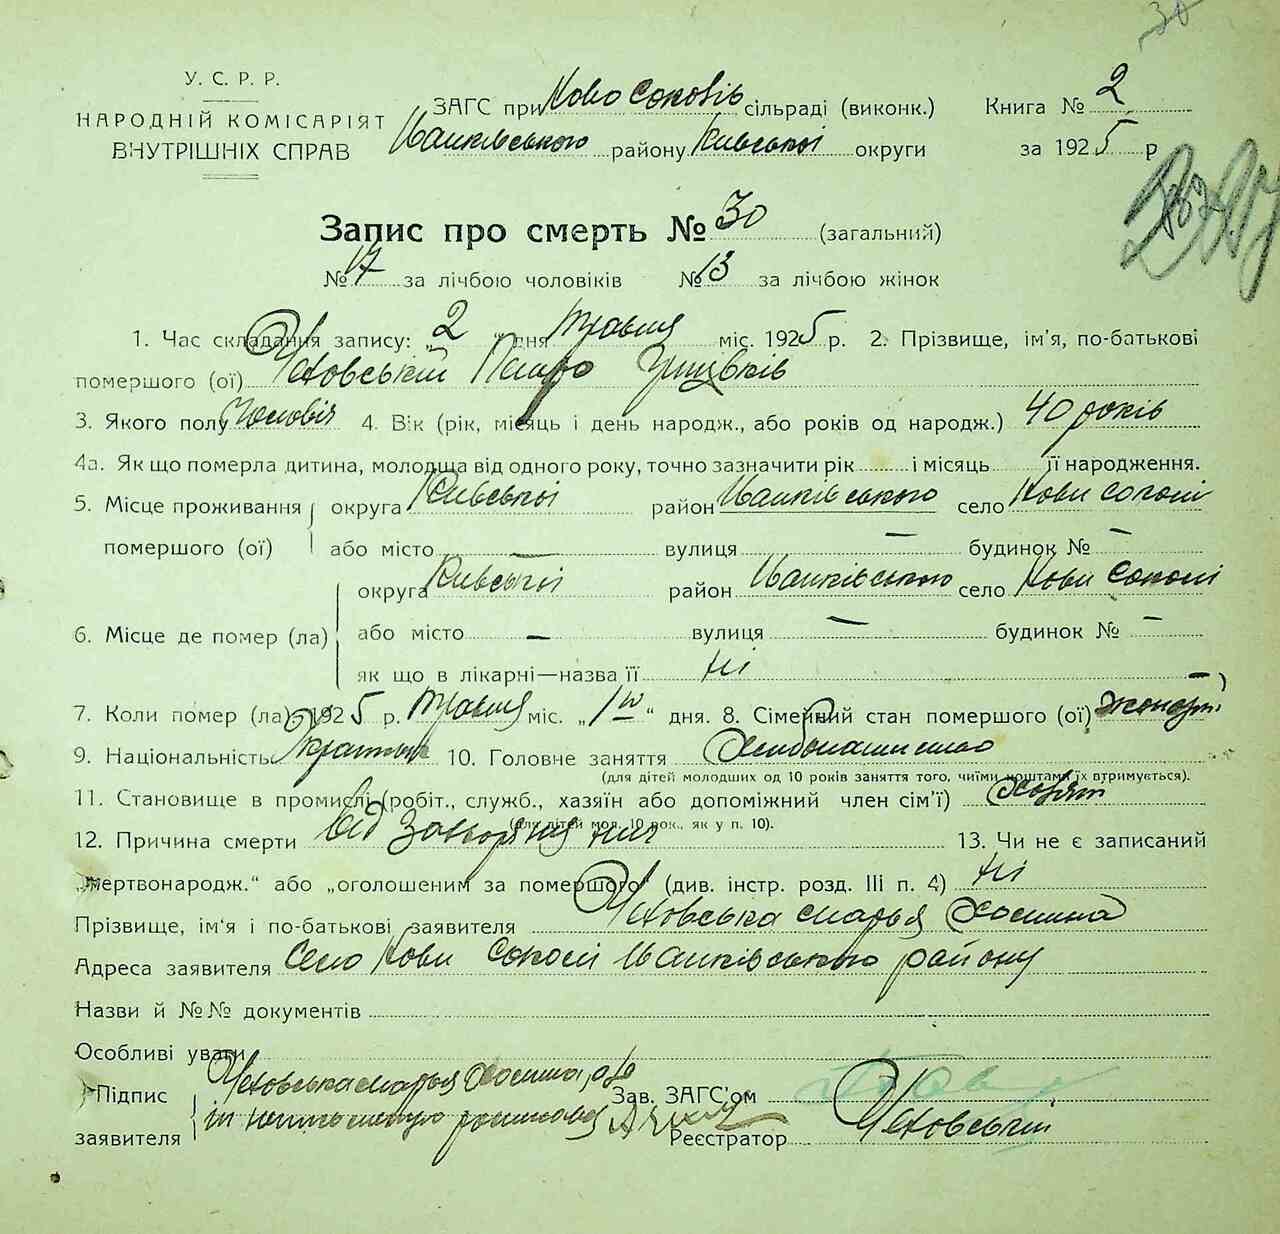 30
У. С. Р. Р.
НАРОДНІЙ КОМІСАРІЯТ
ВНУТРІШНІХ СПРАВ
ЗАГС при Ново Соковів сільраді (виконк.)
району Київської округи
Книга № 2
за 1925 р
Запис про смерть № 30 (загальний)
№ 17 за лічбою чоловіків № 13 за лічбою жінок
1. Час складання запису: „2 “ дня травня міс. 1925 р. 2. Прізвище, ім'я, по-батькові
помершого (ої) Чеховський Петро
3. Якого полу Чоловік 4. Вік (рік, місяць і день народж., або років од народж.) 40 років
4а. Як що померла дитина, молодща від одного року, точно зазначити рік і місяць її народження.
5. Місце проживання округа Київської район село Нови Соколи
помершого (ої) або місто — вулиця — будинок № —
округа Київської район село Нови Соколі
6. Місце де помер (ла) або місто — вулиця — будинок № —
як що в лікарні—назва її ні
7. Коли помер (ла) 1925 р. травня міс. „1го“ дня. 8. Сімейний стан помершого (ої)
9. Національність 10. Головне заняття
(для дітей молодших од 10 років заняття того, чиїми коштами їх втримується).
11. Становище в промислі (робіт., служб., хазяїн або допоміжний член сім'ї) Хозяїн
(для дітей мол. 10 рок., як у п. 10).
12. Причина смерти від 13. Чи не є записаний
„мертвонародж.“ або „оголошеним за помершого“ (див. інстр. розд. III п. 4) ні
Прізвище, ім'я і по-батькові заявителя Чеховська Марья
Адреса заявителя Село Нови Соколі району
Назви й №№ документів
Особливі уваги
Підпис Чеховська Марья Зав. ЗАГС'ом
заявителя Реєстратор Чеховський